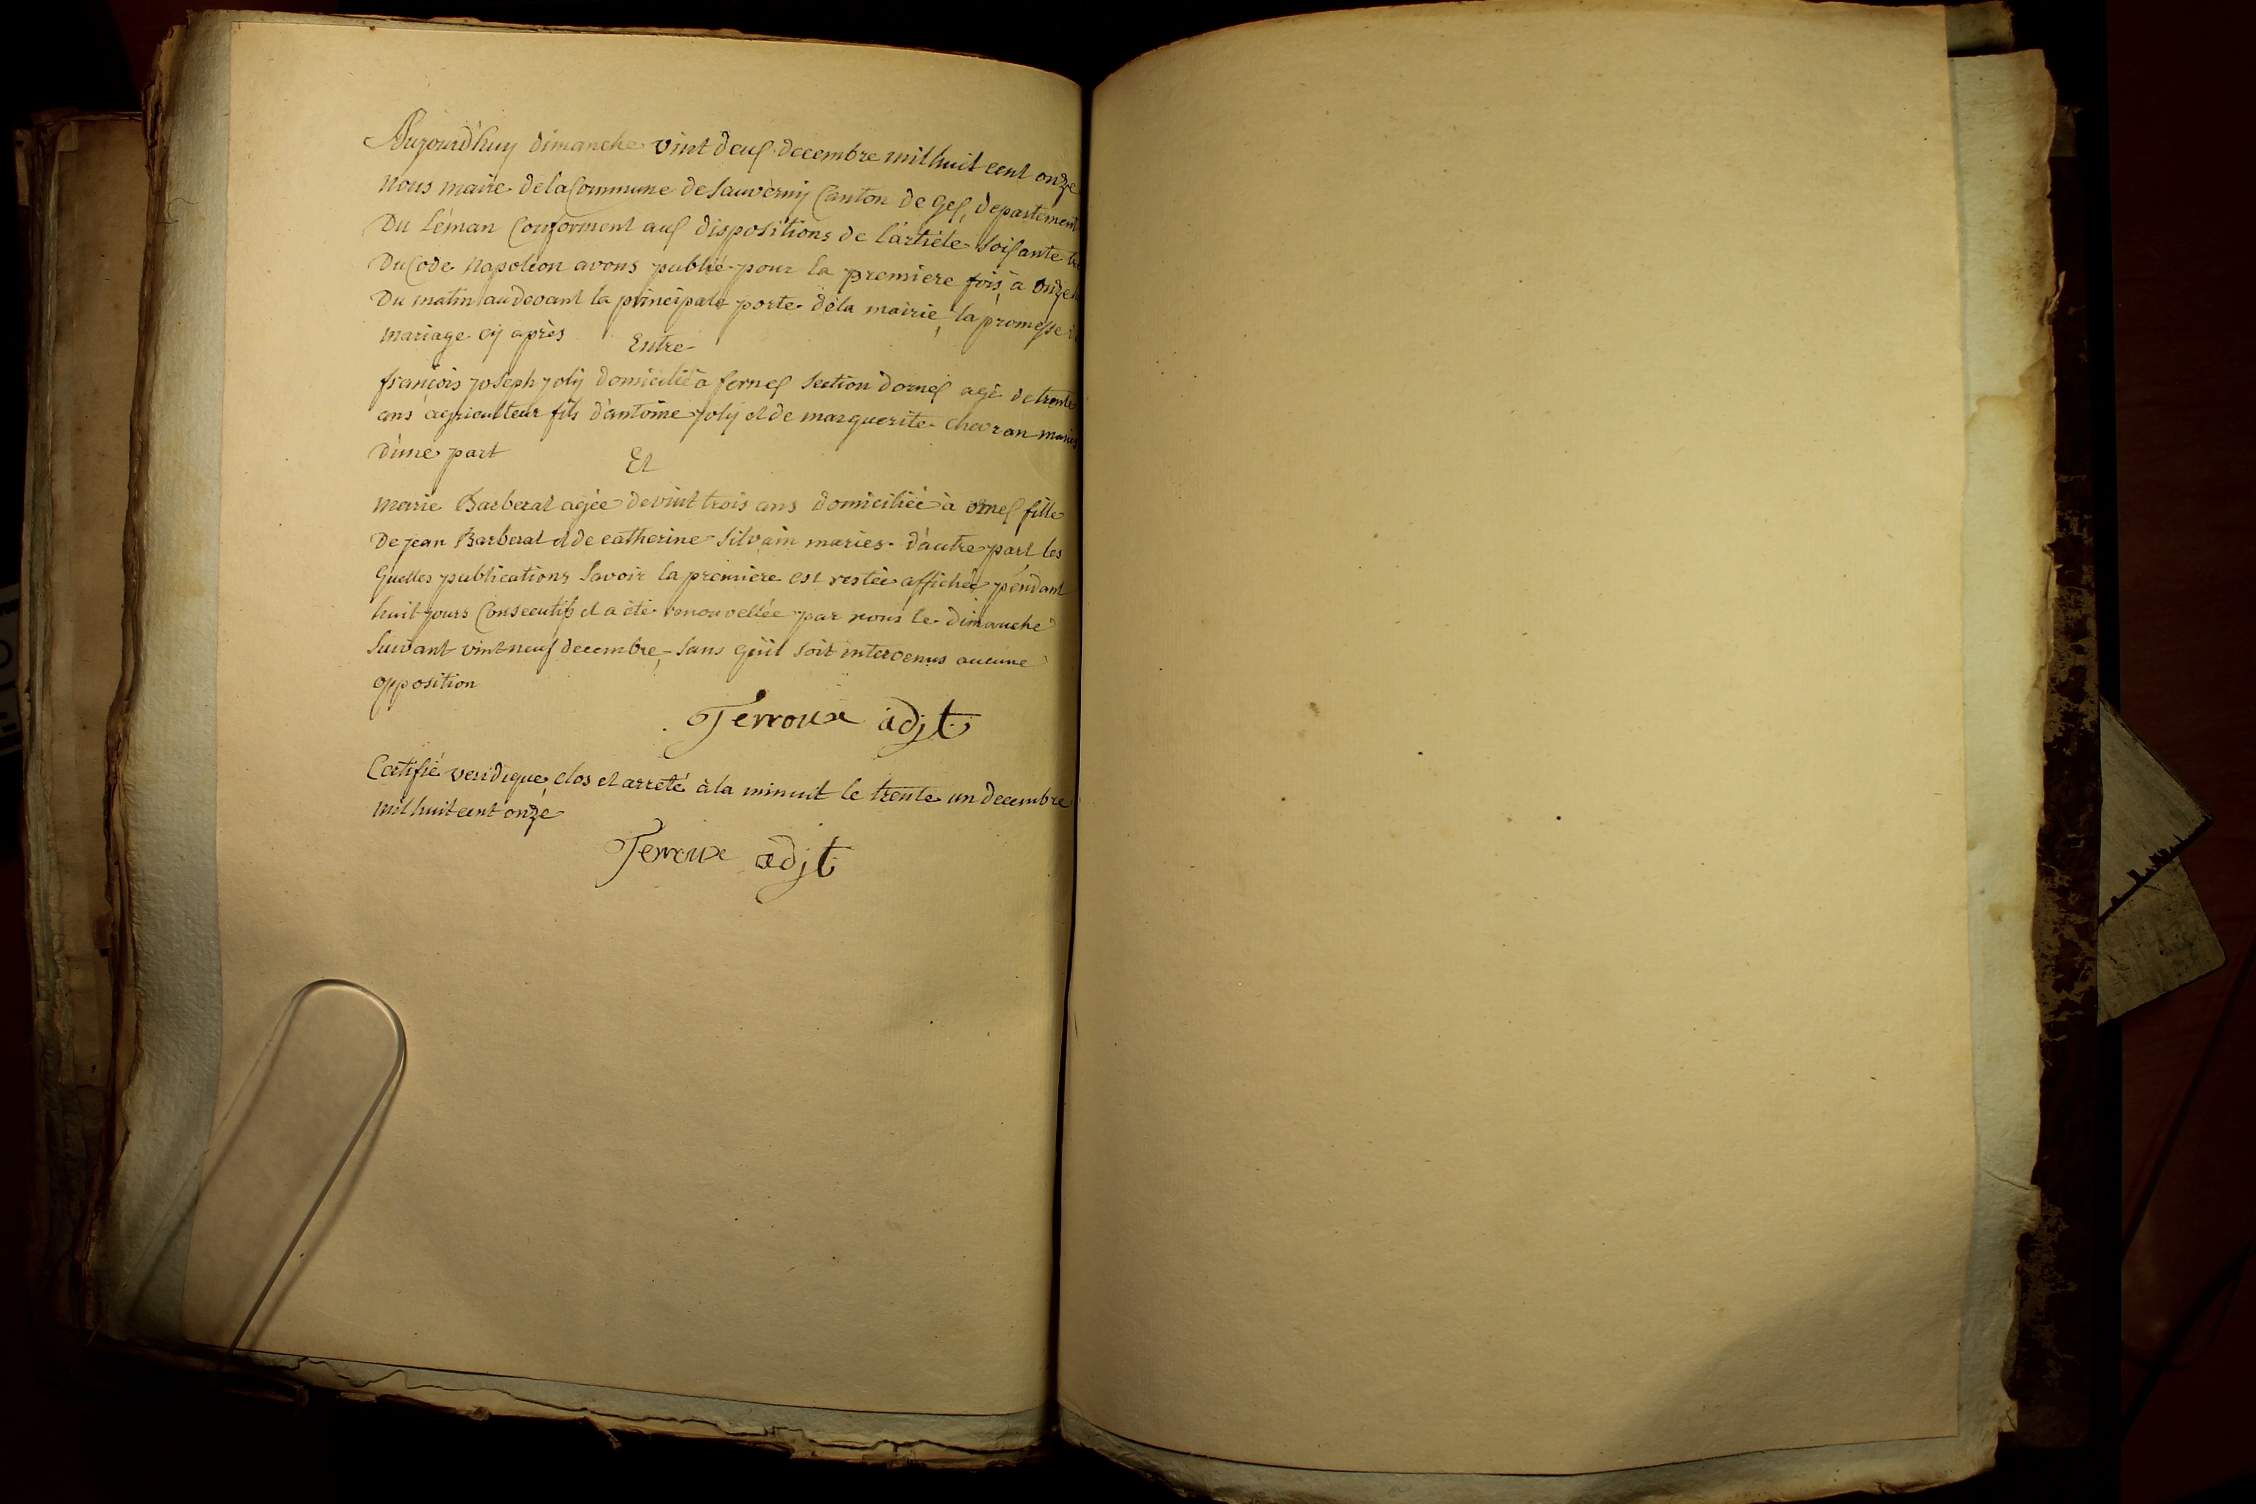 Aujourd'huy dimanche vint deux decembre mil huit cent onze
nous maire de la Commune de Sauverny Canton de Gex, departement
Du Léman Conforment aux dispositions de l'article soixante
Du Code Napoléon avons publié pour la premiere fois à onze
Du matin au devant la principale porte de la mairie, la promesse
mariage cy après
Entre
françois joseph joly domicilié à fernex section dornex agé de trente
ans agriculteur fils d'antoine joly et de marguerite chevran mariés
D'une part
Et
marie Barberat agée de vint trois ans domiciliée à ornex fille
De jean Barberat et de catherine Silvain maries d'autre part les
quelles publications savoir la premiere est restée affichée pendant
huit jours Consecutifs et a été renouvellée par nous le dimanche
suivant vint neuf decembre, sans qu'il soit intervenus aucune
opposition
Terroux adjt
Certifié veridique, clos et arreté à la minuit le trente un decembre
mil huit cent onze
Terroux adjt